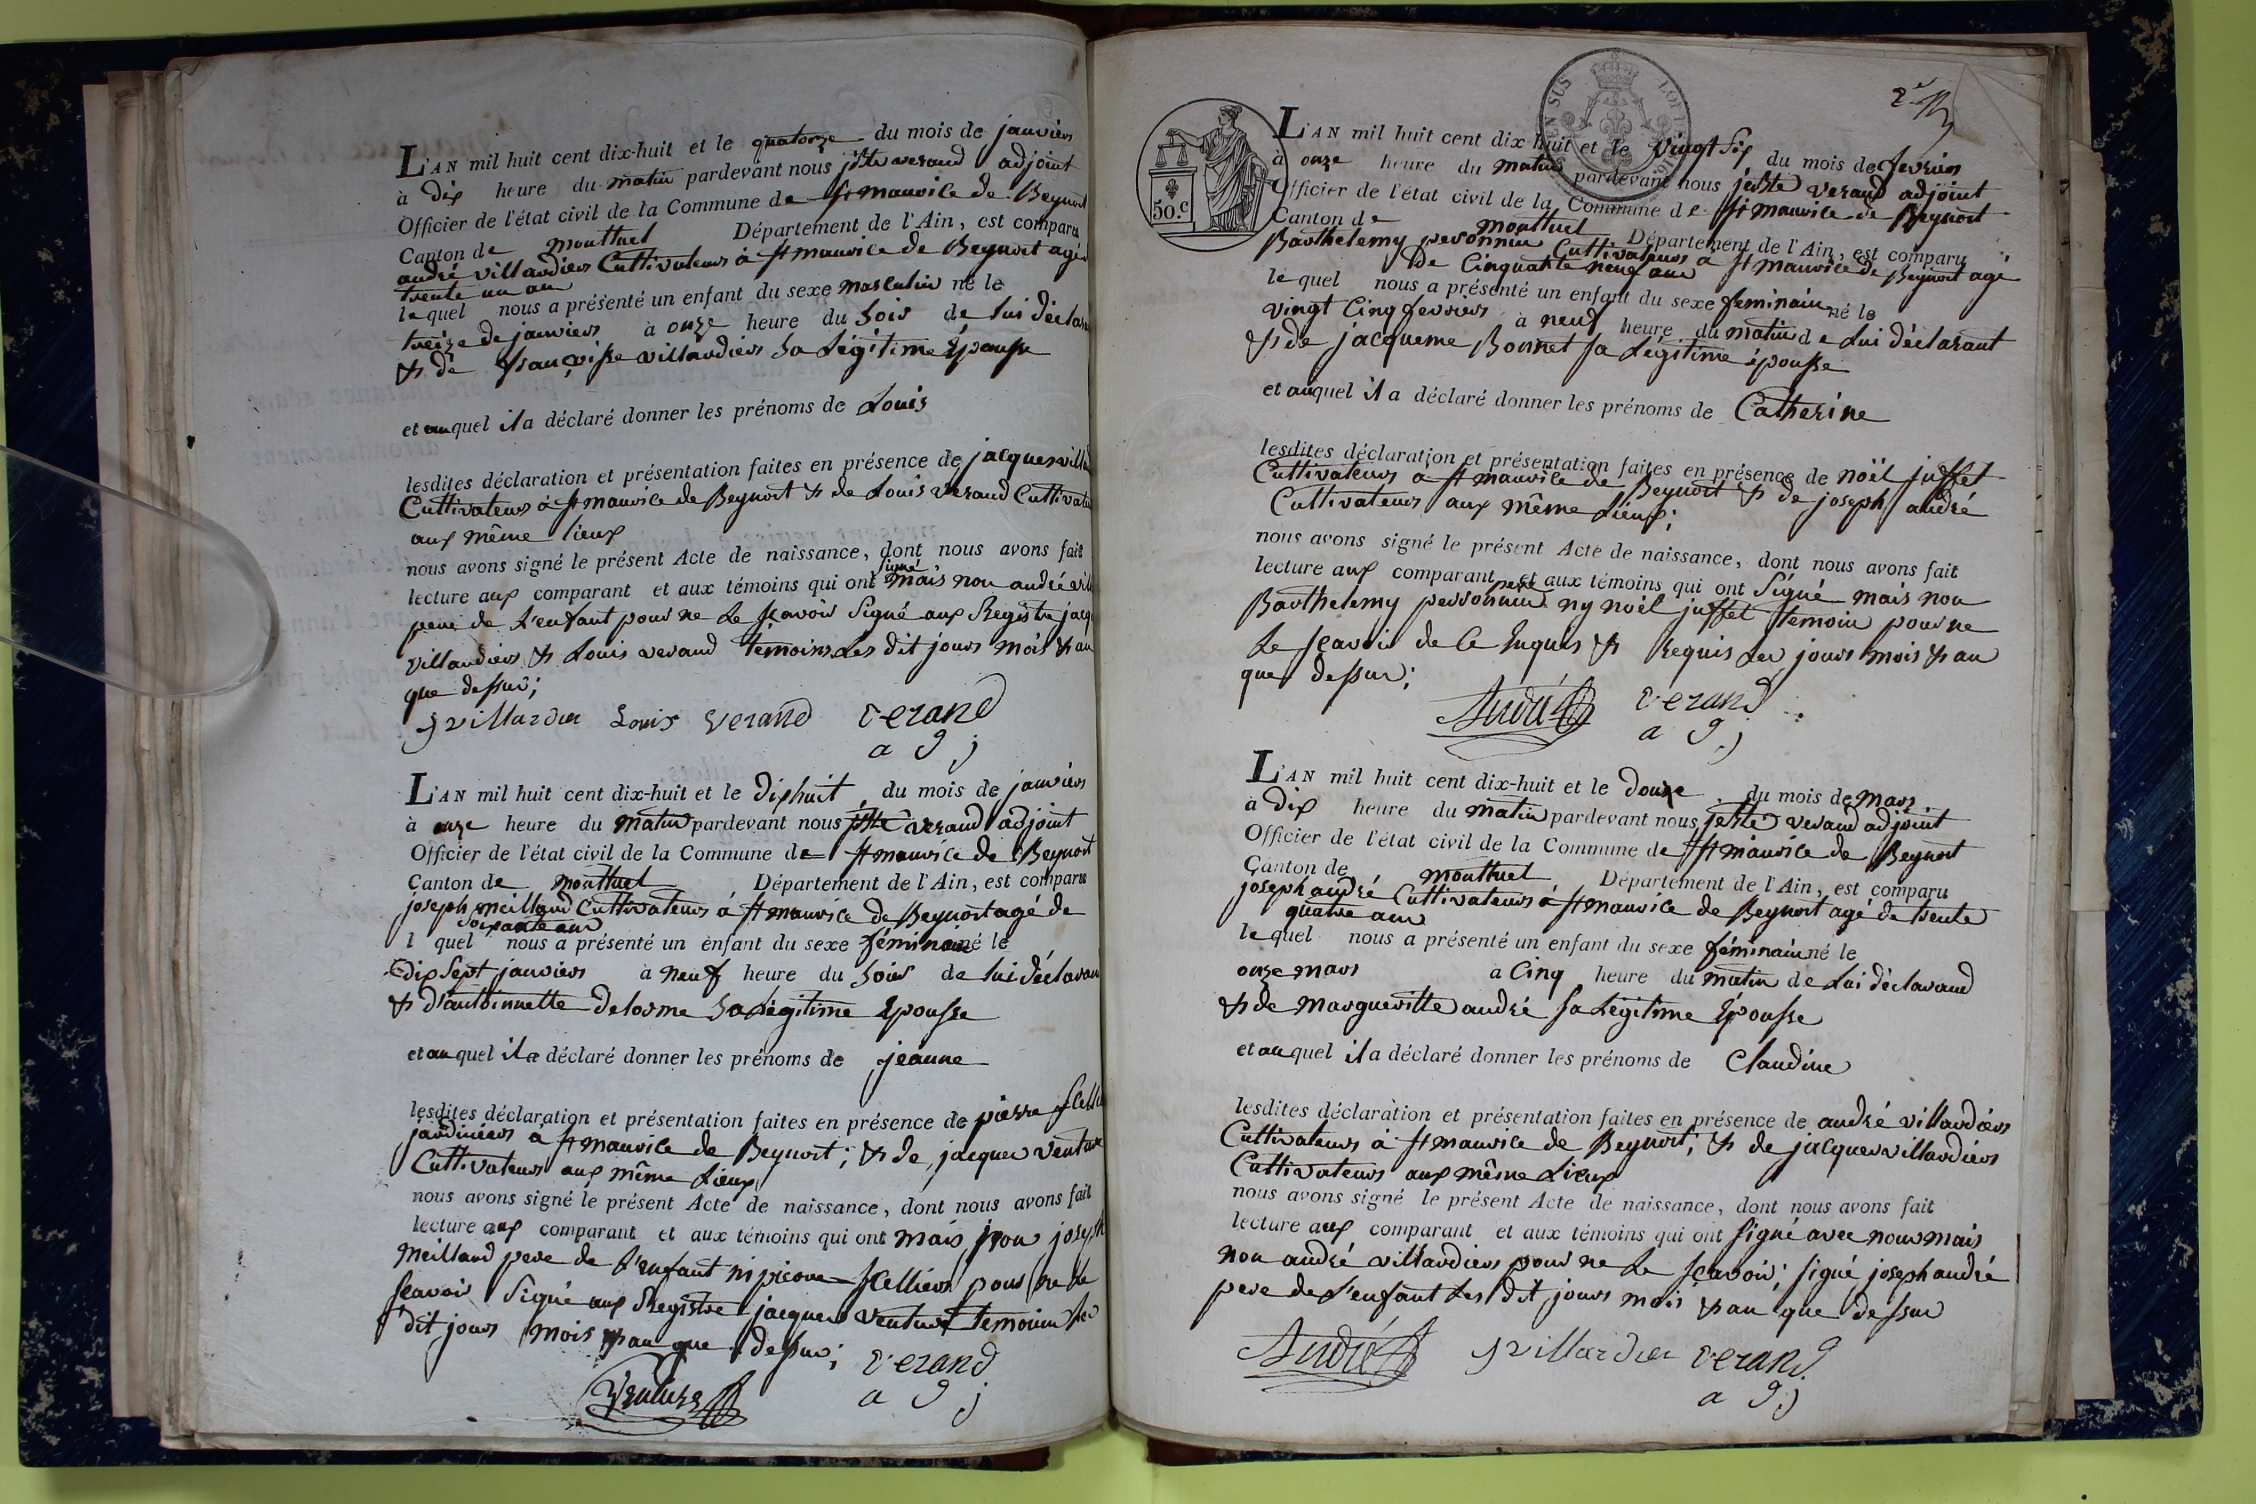 L'AN mil huit cent dix-huit et le quatorze du mois de janvier
à dix heure du matin pardevant nous jste verand adjoint
Officier de l'état civil de la Commune de St maurice de Beynost
Canton de montluel Département de l'Ain, est comparu
andré villardier Cultivateur à St maurice de Beynost agé
trente un an
lequel nous a présenté un enfant du sexe masculin né le
treize de janvier à onze heure du soir de lui déclara
& de françoisse villardier sa Légitime Epousse
et auquel il a déclaré donner les prénoms de Louis
lesdites déclaration et présentation faites en présence de jacques villa
Cultivateur à St maurice de Beynost & de Louis verand Cultivate
aux même lieux
nous avons signé le présent Acte de naissance, dont nous avons fait
lecture aux comparant et aux témoins qui ont signé mais non andré vill
pere de L'enfant pour ne Le sçavoir Signé aux Registre jacq
villardier & Louis verand témoins Les dit jours mois & an
que dessus;
j villardier Louis verand verand
a d j
L'AN mil huit cent dix-huit et le dixhuit du mois de janvier
à onze heure du matin pardevant nous jste verand adjoint
Officier de l'état civil de la Commune de St maurice de Beynost
Canton de montluel Département de l'Ain, est comparu
joseph meilland Cultivateur à St maurice de Beynost agé de
soixante ans
l quel nous a présenté un enfant du sexe féminin né le
dix Sept janvier à neuf heure du soir de lui déclaran
& d'antoinnette delorme sa Légitime Epousse
et auquel il a déclaré donner les prénoms de jeanne
lesdites déclaration et présentation faites en présence de pierre
jardinier à St maurice de Beynost; & de jacques venture
Cultivateur aux même Lieux
nous avons signé le présent Acte de naissance, dont nous avons fait
lecture aux comparant et aux témoins qui ont mais non joseph
meilland pere de L'enfant ni pierre scellier pour ne Le
sçavoir Signé aux Registre jacques venture temoins Les
dit jours mois & an que dessus;
venture verand
a d j
2e
L'AN mil huit cent dix-huit et le vingt six du mois de fevrier
à onze heure du matin pardevant nous jste verand adjoint
Officier de l'état civil de la Commune de St maurice de Beynost
Canton de montluel Département de l'Ain, est comparu
Barthelemy personnier Cultivateur à St maurice de Beynost agé
de Cinquante neuf ans
lequel nous a présenté un enfant du sexe feminin né le
vingt Cinq fevrier à neuf heure du matin de Lui déclarant
& de jacqueme Bonnet sa Légitime épousse
et auquel il a déclaré donner les prénoms de Catherine
lesdites déclaration et présentation faites en présence de noël juffet
Cultivateur à St maurice de Beynost & de joseph andré
Cultivateur aux même Lieux;
nous avons signé le présent Acte de naissance, dont nous avons fait
lecture aux comparant et aux témoins qui ont Signé mais non
Barthelemy personnier pere ny noël juffet temoin pour ne
Le sçavoir de Ce Enquis & Requis Les jours mois & an
que dessus;
André verand
a d j
L'AN mil huit cent dix-huit et le douze du mois de mars
à dix heure du matin pardevant nous jste verand adjoint
Officier de l'état civil de la Commune de St maurice de Beynost
Canton de montluel Département de l'Ain, est comparu
joseph andré Cultivateur à St maurice de Beynost agé de trente
quatre ans
lequel nous a présenté un enfant du sexe féminin né le
onze mars à Cinq heure du matin de Lui déclarand
& de Margueritte andré sa Légitime Épousse
et auquel il a déclaré donner les prénoms de Claudine
lesdites déclaration et présentation faites en présence de andré villardier
Cultivateur à St maurice de Beynost; & de jacques villardier
Cultivateur aux même Lieux
nous avons signé le présent Acte de naissance, dont nous avons fait
lecture aux comparant et aux témoins qui ont signé avec nous mais
non andré villardier pour ne Le sçavoir; signé joseph andré
pere de L'enfant Les dit jours mois & an que dessus
André j villardier verand
a d j
50.c